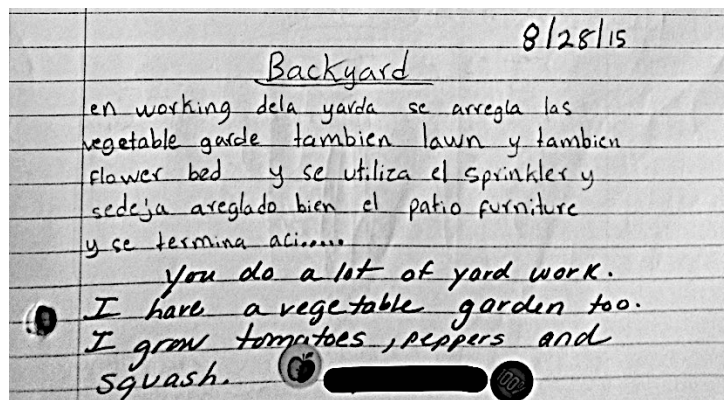 8/28/15
Backyard
en working dela yarda se arregla las
vegetable garde tambien lawn y tambien
flawer bed y se utiliza el sprinkler y
sedeja areglado bien el patio furniture
y se termina aci......
you do a lot of yard work.
I have a vegetable garden too.
I grow tomatoes, peppers and
squash.
100%